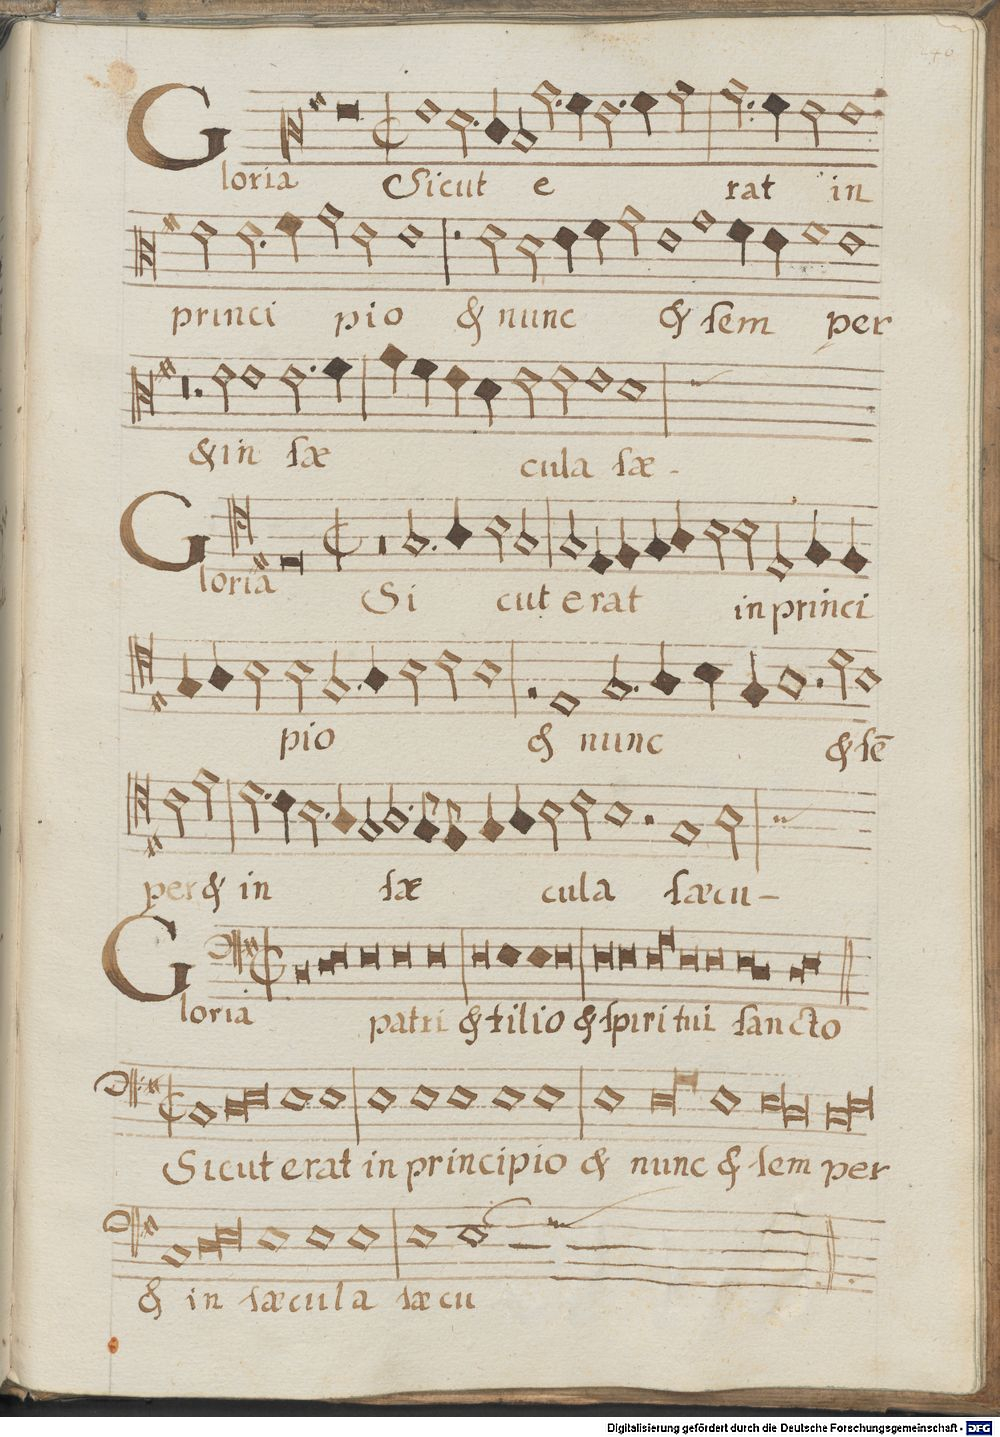 Gloria Sicut e rat in
princi pio & nunc & sem per
& in sæ cula sæ-
Gloria Si cut erat in princi
pio & nunc & sē
per & in sæ cula sæcu-
Gloria patri & filio & spiri tui sancto
Sicut erat in principio & nunc & sem per
& in sæcula sæcu
Digitalisierung gefördert durch die Deutsche Forschungsgemeinschaft - DFG